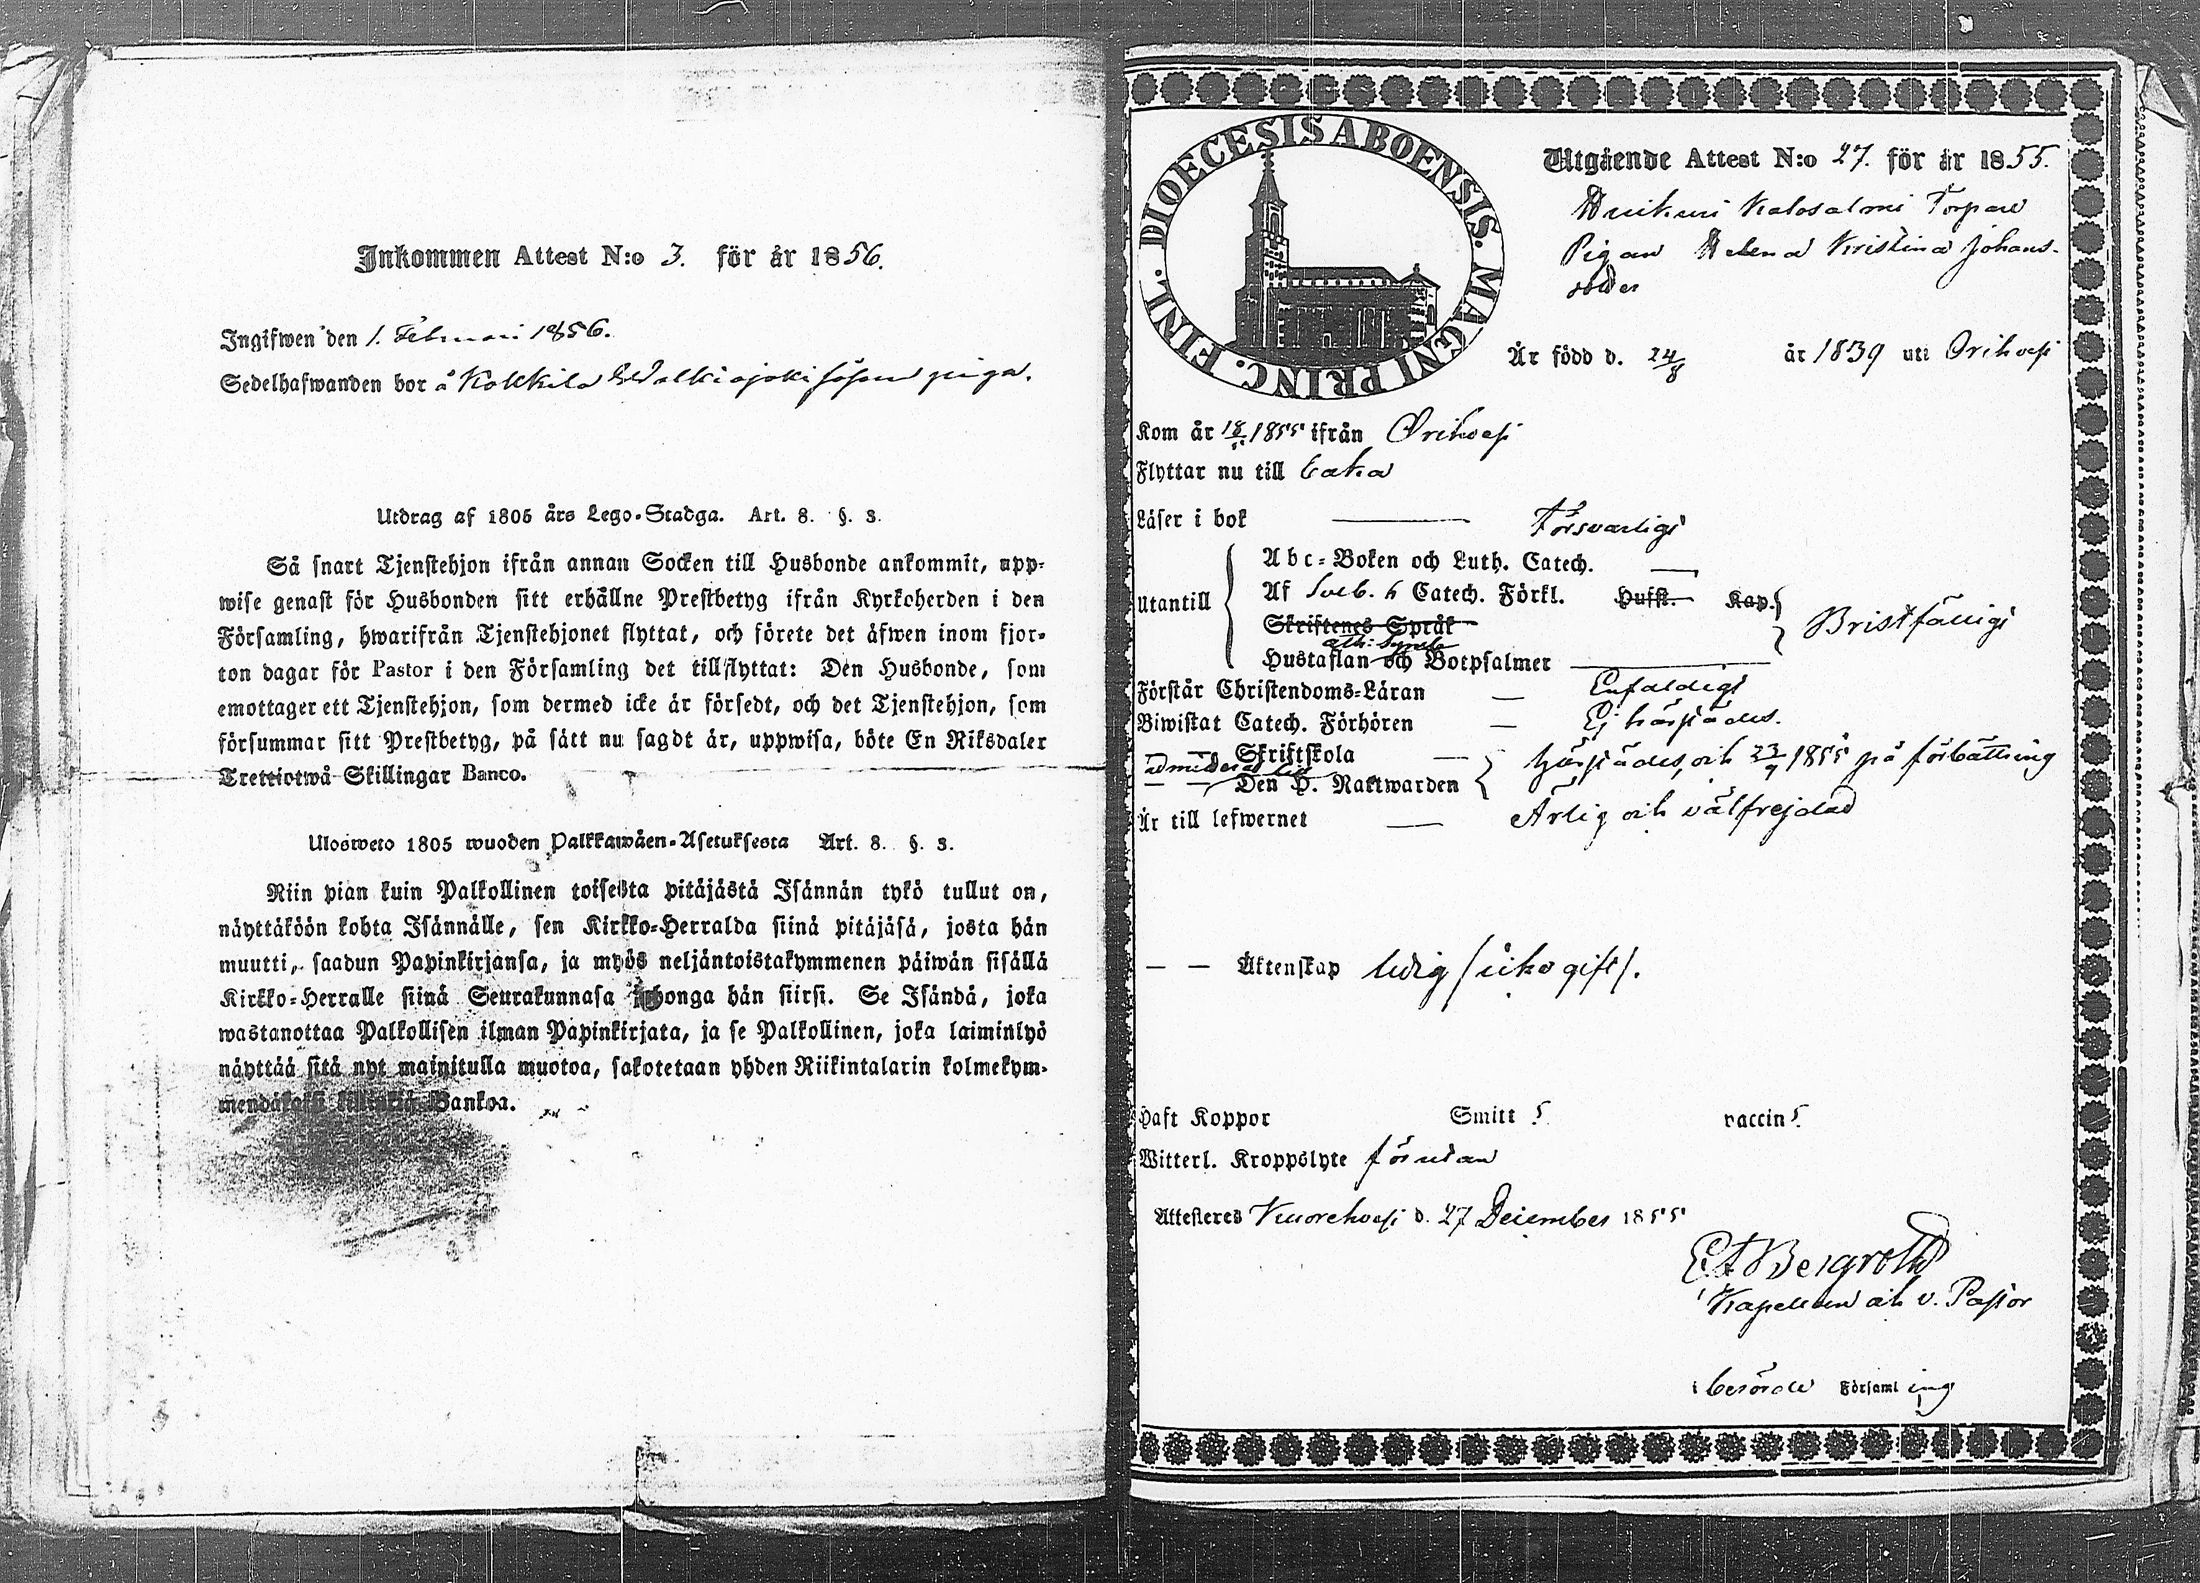 Inkommen Attest N:o 3. för år 1856.
Ingifwen den 1. Februari 1856.
Sedelhafwanden bor å Kokkila Walkiajoki såsom piga.
Utdrag af 1805 års Lego-Stadga. Art. 8. §. 3.
Så snart Tjenstehjon ifrån annan Socken till Husbonde ankommit, upp-
wise genast för Husbonden sitt erhållne Prestbetyg ifrån Kyrkoherden i den
Församling, hwarifrån Tjenstehjonet flyttat, och förete det äfwen inom fjor-
ton dagar för Pastor i den Församling det tillflyttat: Den Husbonde, som
emottager ett Tjenstehjon, som dermed icke är försedt, och det Tjenstehjon, som
försummar sitt Prestbetyg, på sätt nu sagdt är, uppwisa, böte En Riksdaler
Trettiotwå Skillingar Banco.
Ulosweto 1805 wuoden Palkkawäen-Asetuksesta Art. 8. §. 3.
Niin pian kuin Palkollinen toisesta pitäjästä Isännän tykö tullut on,
näyttäköön kohta Isännälle, sen Kirkko-Herralda siinä pitäjäsä, josta hän
muutti, saadun Papinkirjansa, ja myös neljäntoistakymmenen päiwän sisällä
Kirkko-Herralle siinä Seurakunnasa johonga hän siirsi. Se Isändä, joka
wastanottaa Palkollisen ilman Papinkirjata, ja se Palkollinen, joka laiminlyö
näyttää sitä nyt mainitulla muotoa, sakotetaan yhden Riikintalarin kolmekym-
mendäkaksi killinkiä Bankoa.
DIOECESIS ABOENSIS. MAGNI PRINC. FINL.
Utgående Attest N:o 27. för år 1855.
Kalosalmi Torpare
Pigan Helena Kristina Johans-
dotter
Är född d. 24/8 år 1839 uti Orihvesi
Kom år 18/11 1855 ifrån Orihvesi
Flyttar nu till Eräjärvi
Läser i bok — Försvarligt
Utantill
Abc-Boken och Luth. Catech. —
Af Sveb. h Catech. Förkl. Hufst. Kap. Bristfälligt
Skriftenes Språk
Hustaflan och Botpsalmer —
Förstår Christendoms-Läran — Enfaldigt
Biwistat Catech. Förhören — Ej härstädes.
— — Skriftskola — härstädes, och 23/9 1855 på förbättring
admitterad till
— — Den H. Nattwarden
Är till lefwernet — Ärlig och välfrejdad
— — Äktenskap ledig /icke gift/.
Haft Koppor Smitt vaccin
Witterl. Kroppslyte förutan
Attesteres Kuorehvesi d. 27 December 1855
Bergroth
Kapellan och v. Pastor
i berörde Församling